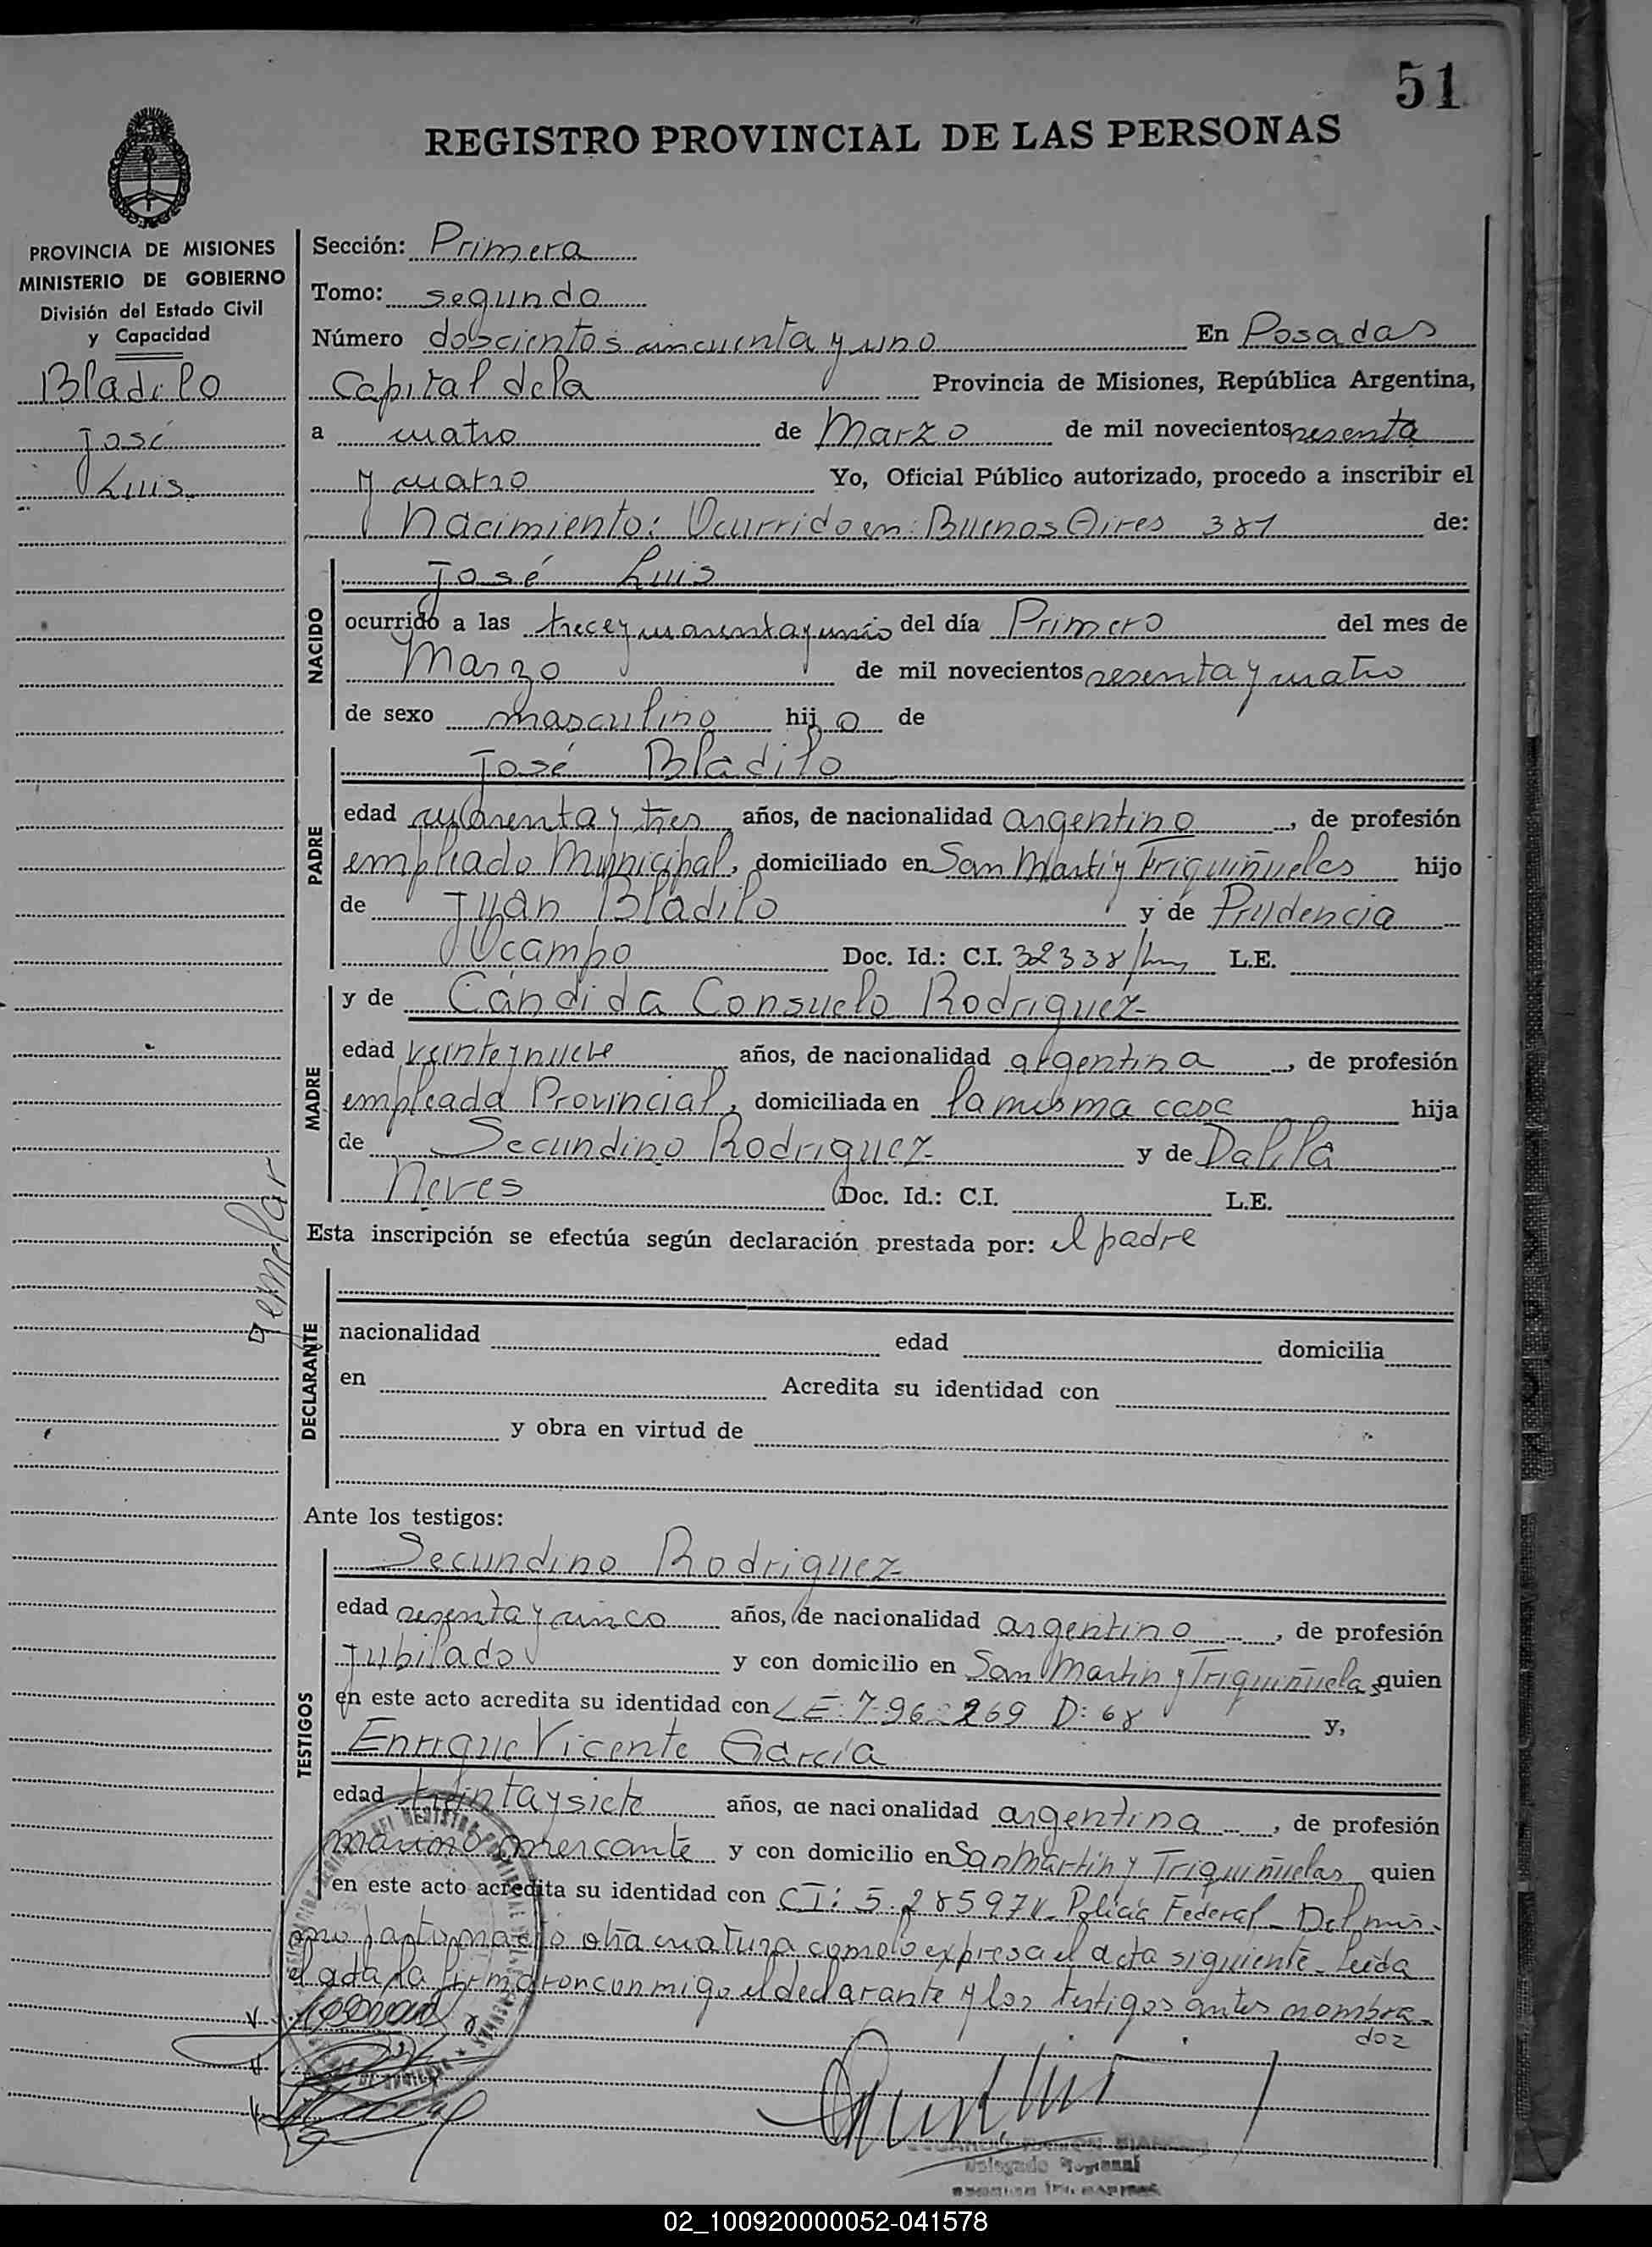 51
REGISTRO PROVINCIAL DE LAS PERSONAS
PROVINCIA DE MISIONES
MINISTERIO DE GOBIERNO
División del Estado Civil
y Capacidad
Bladilo
José
Luis
Sección: Primera
Tomo: segundo
Número doscientos cincuenta y uno En Posadas
Capital de la Provincia de Misiones, República Argentina,
a cuatro de Marzo de mil novecientos sesenta
y cuatro Yo, Oficial Público autorizado, procedo a inscribir el
Nacimiento: Ocurrido en: Buenos Aires 381 de:
NACIDO
José Luis
ocurrido a las trece y cuarenta y cinco del día Primero del mes de
Marzo de mil novecientos sesenta y cuatro
de sexo masculino hijo de
PADRE
José Bladilo
edad cuarenta y tres años, de nacionalidad argentino, de profesión
empleado Municipal, domiciliado en San Martí y Triquiñueles hijo
de Juan Bladilo y de Prudencia
Ocampo Doc. Id.: C.I. 32338 L.E.
MADRE
y de Cándida Consuelo Rodriguez-
edad veinte y nueve años, de nacionalidad argentina, de profesión
empleada Provincial, domiciliada en la misma casa hija
de Secundino Rodriguez- y de Dalila
Neves Doc. Id.: C.I. L.E.
Esta inscripción se efectúa según declaración prestada por: el padre
DECLARANTE
nacionalidad edad domicilia
en Acredita su identidad con
y obra en virtud de
Ante los testigos:
TESTIGOS
Secundino Rodriguez-
edad sesenta y cinco años, de nacionalidad argentino, de profesión
Jubilado y con domicilio en San Martin y Triquiñuelas quien
en este acto acredita su identidad con LE: 7.962269 D: 68 y,
Enrique Vicente García
edad treinta y siete años, de nacionalidad argentina, de profesión
marino mercante y con domicilio en San Martín y Triquiñuelas quien
en este acto acredita su identidad con CI: 5.285974- Policía Federal- Del mis-
mo parto nació otra criatura como lo expresa el acta siguiente- Leída
el acta la firmaron conmigo el declarante y los testigos antes nombra-
doz
Delegado Regional
02_100920000052-041578